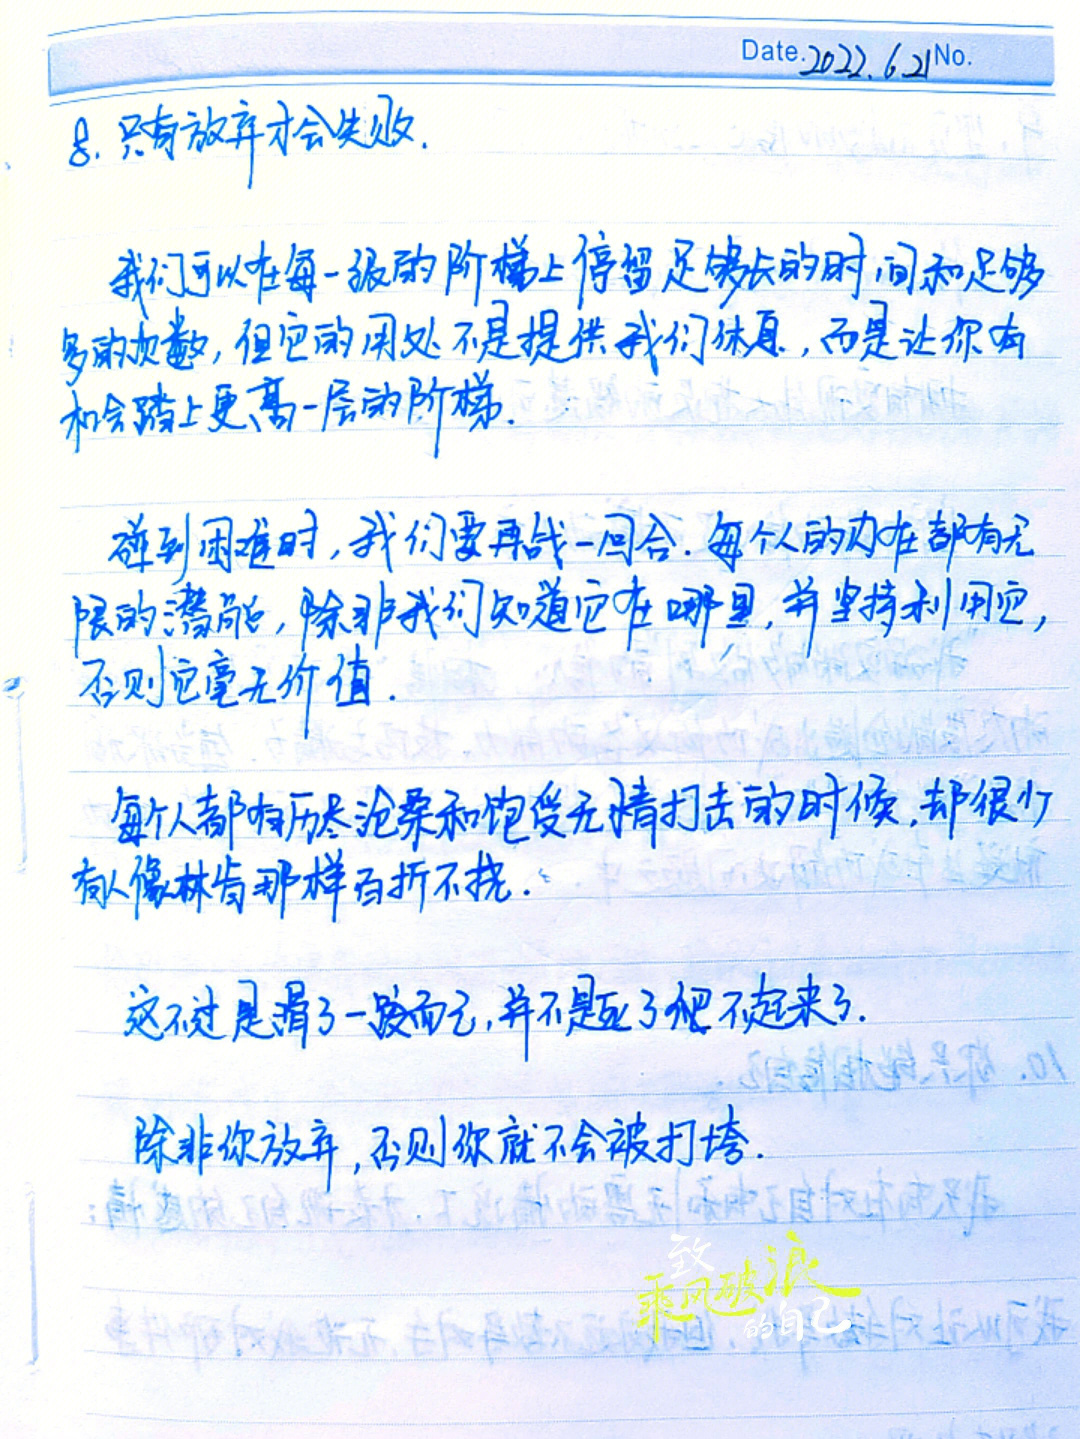 Date. 2022.6.21 No.
8. 只有放弃才会失败.
我们可以在每一级的阶梯上停留足够长的时间和足够
多的次数,但它的用处不是提供我们休息,而是让你有
机会踏上更高一层的阶梯.
碰到困难时,我们要再战一回合.每个人的内在都有无
限的潜能,除非我们知道它在哪里,并坚持利用它,
否则它毫无价值.
每个人都有历尽沧桑和饱受无情打击的时候,却很少
有人像林肯那样百折不挠.
这不过是滑了一跤而已,并不是死了爬不起来了.
除非你放弃,否则你就不会被打垮.
致
乘风破浪
的自己